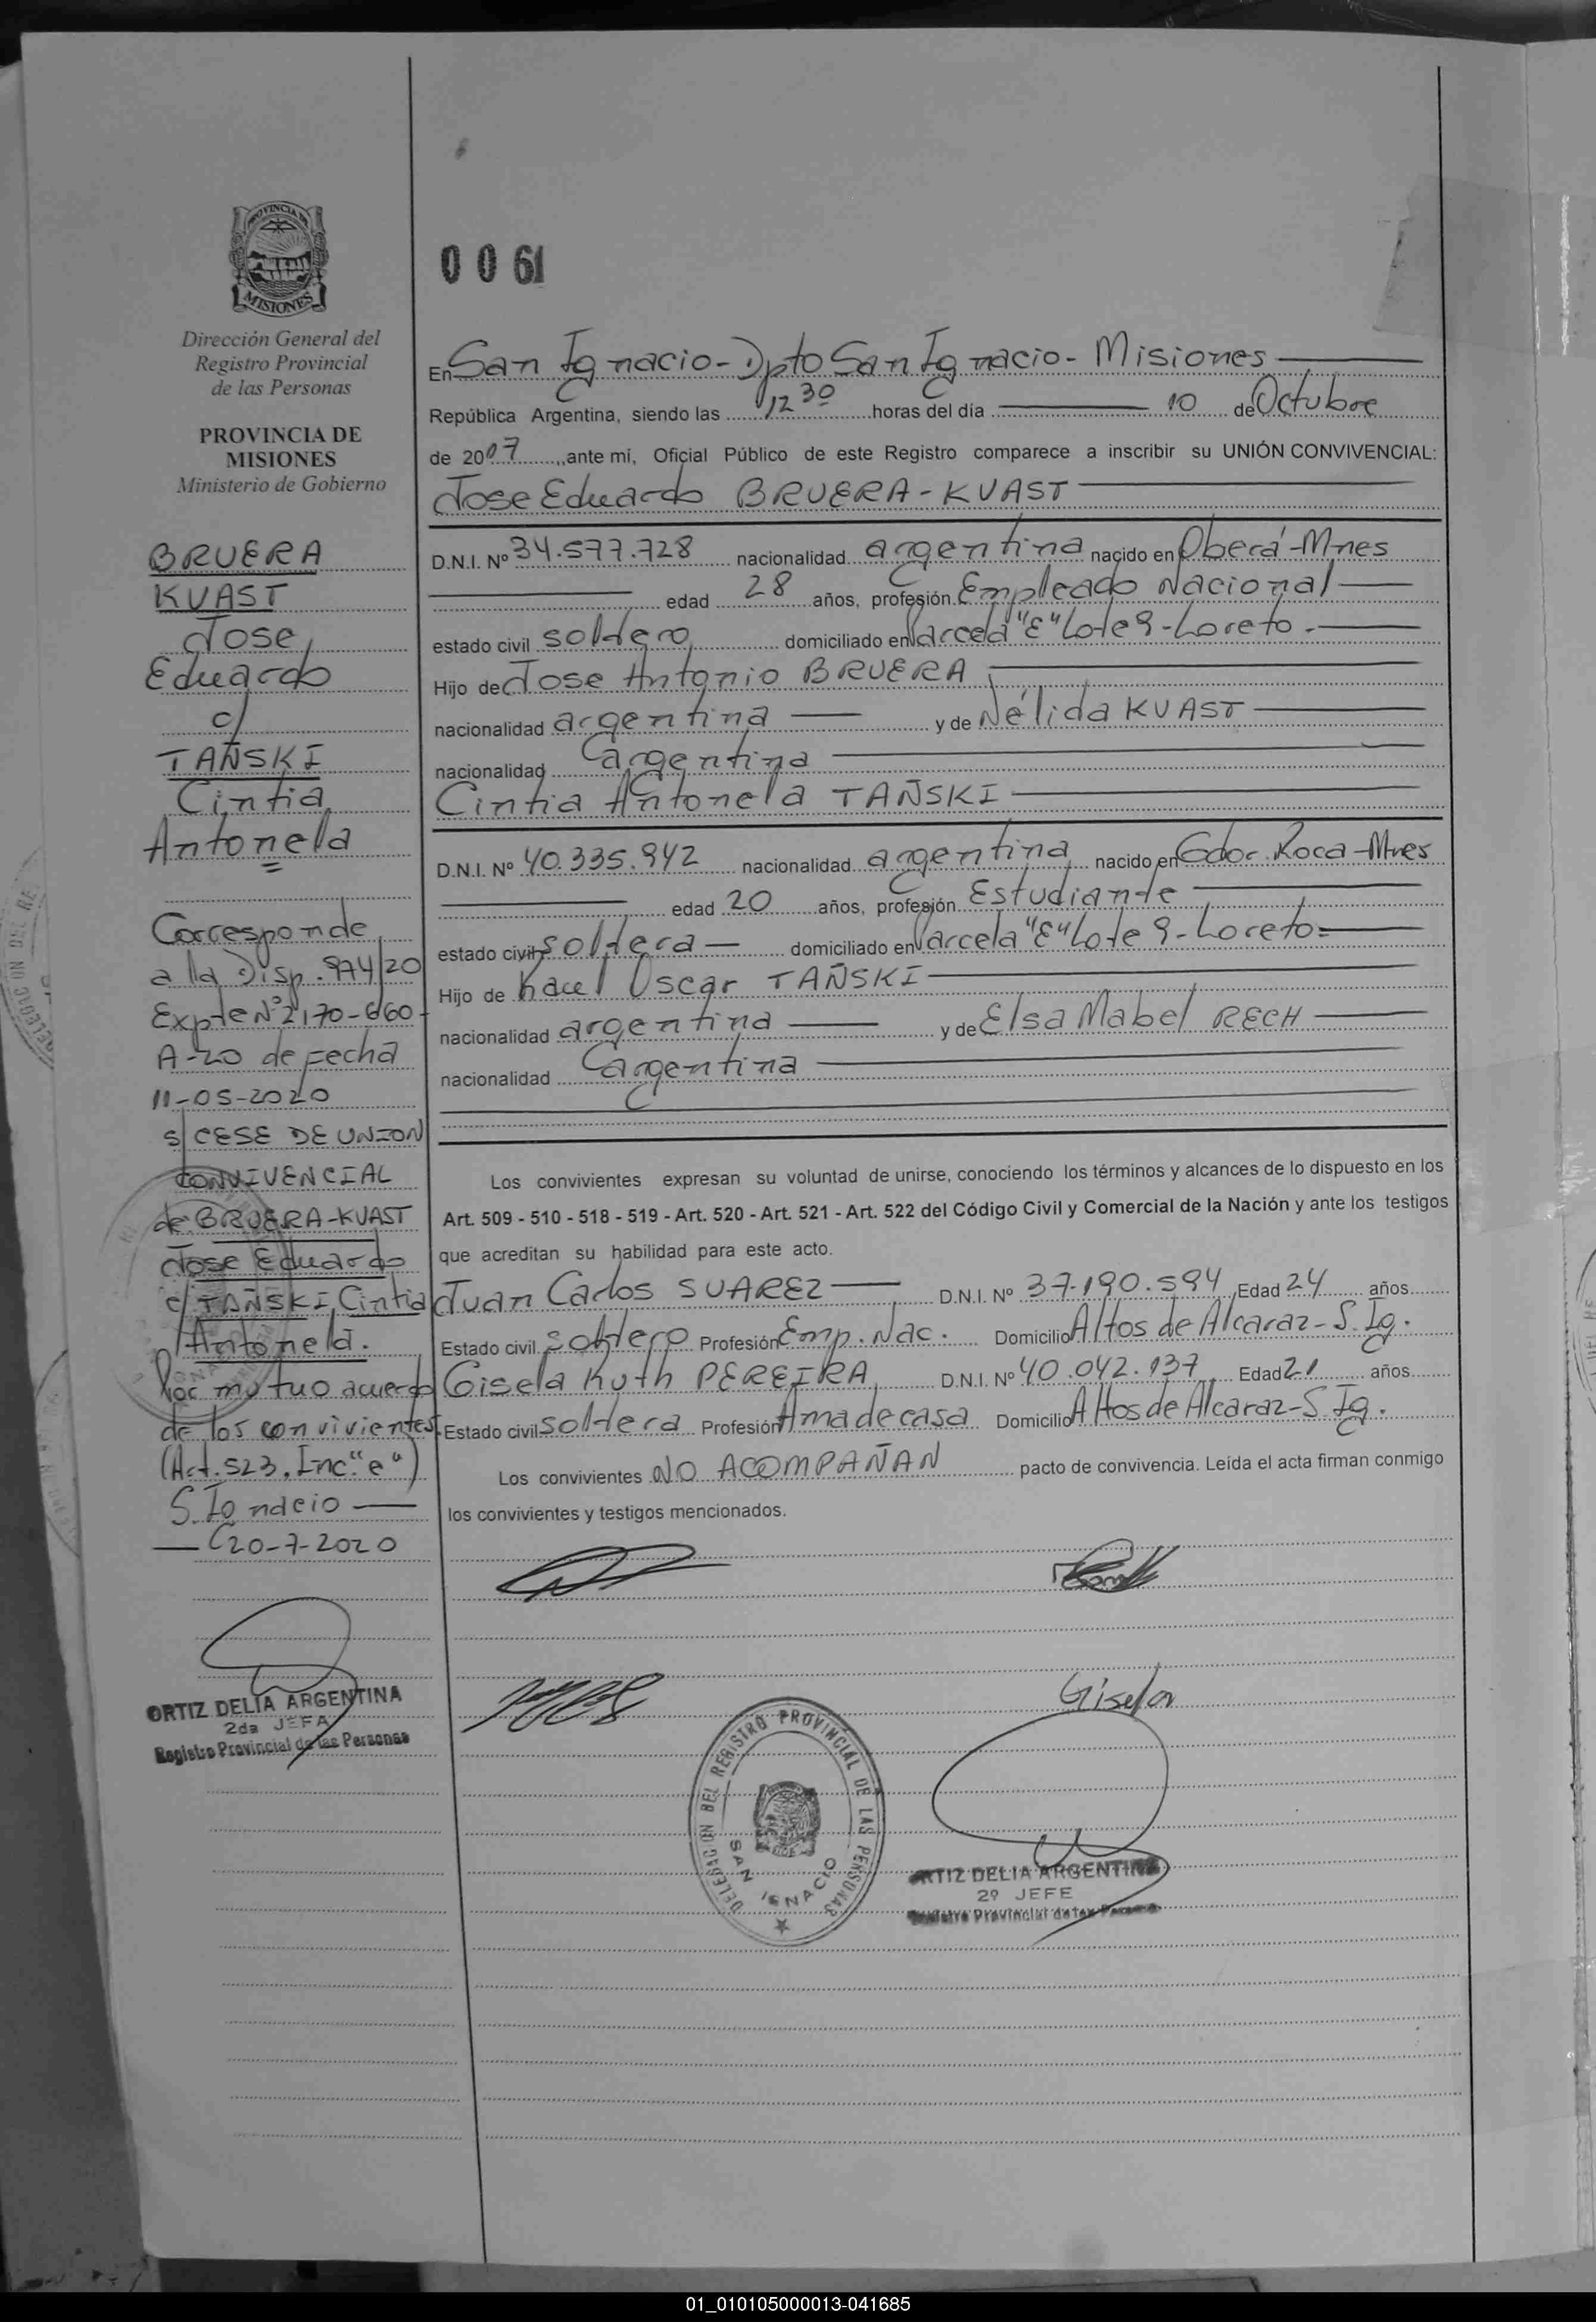 PROVINCIA DE
MISIONES
Dirección General del
Registro Provincial
de las Personas
PROVINCIA DE
MISIONES
Ministerio de Gobierno
BRUERA
KVAST
Jose
Eduardo
c/
TAÑSKI
Cintia
Antonela
Corresponde
a la Disp. 974/20
Expte Nº 2170-660-
A-20 de Fecha
11-05-2020
s/ CESE DE UNION
CONVIVENCIAL
de BRUERA-KVAST
Jose Eduardo
c/ TAÑSKI, Cintia
Antonela.
Por mutuo acuerdo
de los convivientes.
(Art. 523. Inc "e")
S. Ignacio
20-7-2020
ORTIZ DELIA ARGENTINA
2da JEFA
Registro Provincial de las Personas
0061
En San Ignacio - Dpto San Ignacio - Misiones
República Argentina, siendo las 12 30 horas del día 10 de Octubre
de 2017, ante mí, Oficial Público de este Registro comparece a inscribir su UNIÓN CONVIVENCIAL:
Jose Eduardo BRUERA-KVAST
D.N.I. Nº 34.577.728 nacionalidad argentina nacido en Oberá-Mnes
edad 28 años, profesión Empleado Nacional
estado civil soltero domiciliado en Parcela "E" Lote 9-Loreto.
Hijo de Jose Antonio BRUERA
nacionalidad argentina y de Nélida KVAST
nacionalidad argentina
Cintia Antonela TAÑSKI
D.N.I. Nº 40.335.942 nacionalidad argentina nacido en Gdor. Roca-Mnes
edad 20 años, profesión Estudiante
estado civil soltera domiciliado en Parcela "E" Lote 9-Loreto
Hijo de Raul Oscar TAÑSKI
nacionalidad argentina y de Elsa Mabel RECH
nacionalidad argentina
Los convivientes expresan su voluntad de unirse, conociendo los términos y alcances de lo dispuesto en los
Art. 509 - 510 - 518 - 519 - Art. 520 - Art. 521 - Art. 522 del Código Civil y Comercial de la Nación y ante los testigos
que acreditan su habilidad para este acto.
Juan Carlos SUAREZ D.N.I. Nº 37.190.594 Edad 24 años
Estado civil soltero Profesión Emp. Nac. Domicilio Altos de Alcaraz-S. Ig.
Gisela Ruth PEREIRA D.N.I. Nº 40.042.137 Edad 21 años
Estado civil soltera Profesión Ama de casa Domicilio Altos de Alcaraz-S Ig.
Los convivientes NO ACOMPAÑAN pacto de convivencia. Leída el acta firman conmigo
los convivientes y testigos mencionados.
Gisela
DELEGACION DEL REGISTRO PROVINCIAL DE LAS PERSONAS
SAN IGNACIO
ORTIZ DELIA ARGENTINA
2º JEFE
Registro Provincial de las Personas
01_010105000013-041685